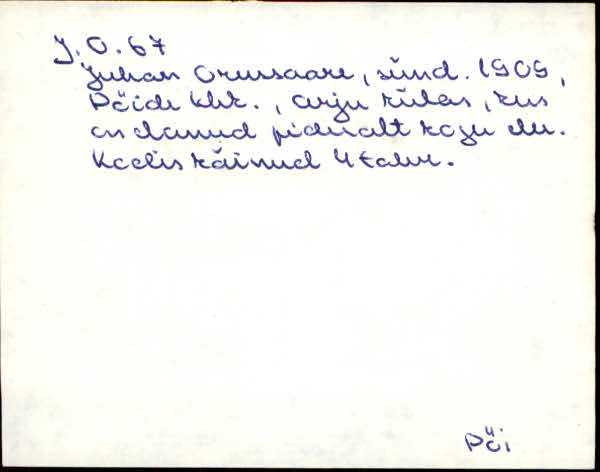 J. O. 67
Juhan Orussaare, sünd. 1909,
Pöide khk., Arju külas, kus
on elanud pidevalt kogu elu.
Koolis käinud 4 talve.
Pöi